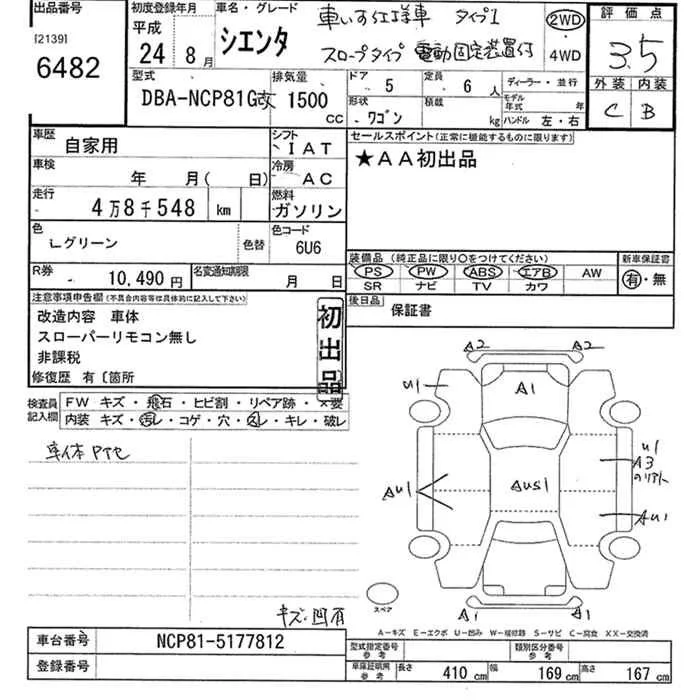 出品番号 初度登録年月 車名・グレード 車いす仕様車 タイプ1 2WD 評価点
[2139] 平成 シエンタ スロープタイプ 電動固定装置付 4WD 3.5
6482 24 8月
型式 排気量 ドア 定員 ディーラー・並行 外装 内装
DBA-NCP81G改 1500 CC 5 6人 モデル年式 年 C B
形状 ワゴン 積載 kg ハンドル 左・右
車歴 自家用 シフト IAT セールスポイント(正常に機能するものに限ります)
車検 年 月( 日) 冷房 AC ★AA初出品
走行 4万8千548 km 燃料 ガソリン
色 Lグリーン 色替 色コード 6U6
装備品(純正品に限り○をつけてください) 新車保証書
PS PW ABS エアB AW 有・無
SR ナビ TV カワ
R券 10,490円 名変通知期限 月 日
後日品 保証書
注意事項申告欄(不具合内容等は具体的に記入して下さい)
改造内容 車体
スローパーリモコン無し
非課税
修復歴 有〔箇所
初出品
検査員記入欄 FW キズ・飛石・ヒビ割・リペア跡・×要
内装 キズ・汚レ・コゲ・穴・スレ・キレ・破レ
車体Pテセ
キズ・凹有
A2 A2
U1 A1
U1
A3
のリアト
AU1 AUS1 AU1
A1 A1
スペア
A-キズ E-エクボ U-凹み W-補修跡 S-サビ C-腐食 XX-交換済
車台番号 NCP81-5177812
登録番号
型式指定番号 参考 類別区分番号 参考
車庫証明用 参考 長さ 410cm 幅 169cm 高さ 167cm